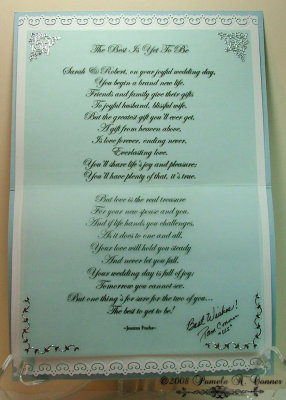 The Best Is Yet To Be
Sarah & Robert, on your joyful wedding day,
You begin a brand new life.
Friends and family give their gifts
To joyful husband, blissful wife.
But the greatest gift you'll ever get,
A gift from heaven above,
Is love forever, ending never,
Everlasting love.
You'll share life's joy and pleasure;
You'll have plenty of that, it's true.
But love is the real treasure
For your new spouse and you.
And if life hands you challenges,
As it does to one and all,
Your love will hold you steady
And never let you fall.
Your wedding day is full of joy;
Tomorrow you cannot see.
But one thing's for sure for the two of you...
The best is yet to be!
~Joanna Fuchs~
Best Wishes!
©2008 Pamela R. Conner